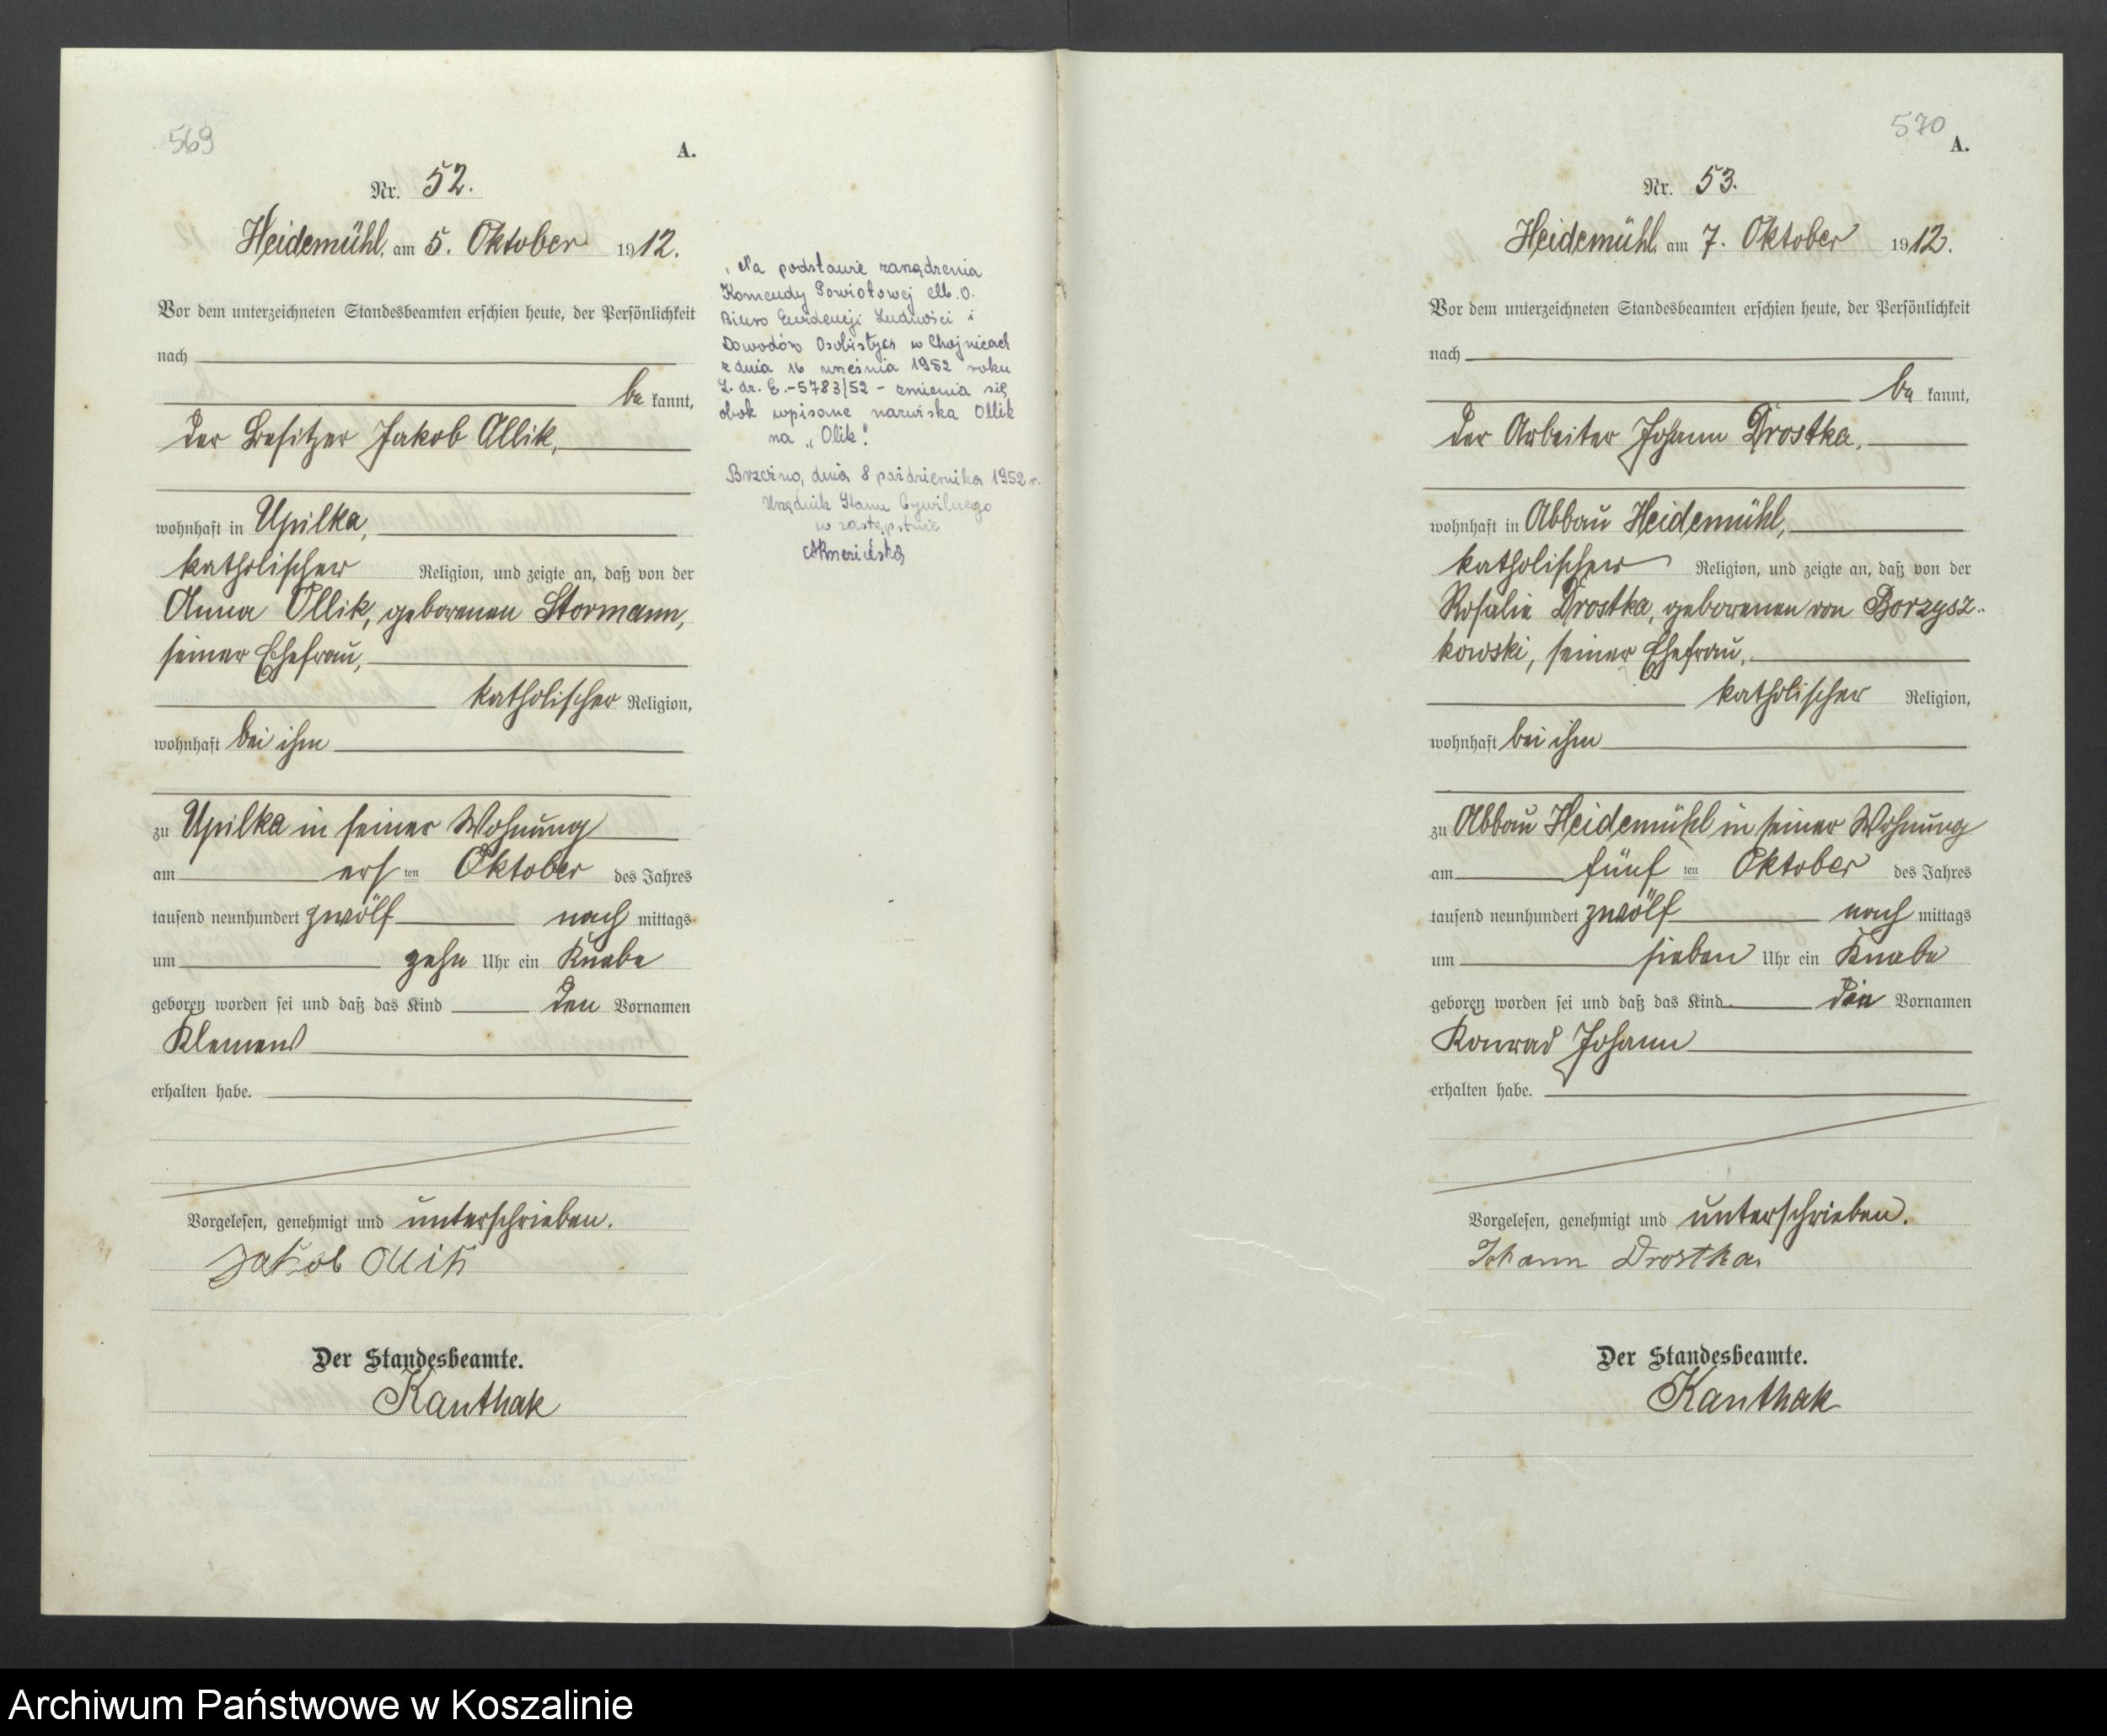 569
A.
Nr. 52.
Heidemühl, am 5. Oktober 1912.
Vor dem unterzeichneten Standesbeamten erschien heute, der Persönlichkeit
nach
be kannt,
der Besitzer Jakob Ollik,
wohnhaft in Upilka,
katholischer Religion, und zeigte an, daß von der
Anna Ollik, geborenen Stormann,
seiner Ehefrau,
katholischer Religion,
wohnhaft bei ihm
zu Upilka in seiner Wohnung
am ers ten Oktober des Jahres
tausend neunhundert zwölf nach mittags
um zehn Uhr ein Knabe
geboren worden sei und daß das Kind den Vornamen
Klemens
erhalten habe.
Vorgelesen, genehmigt und unterschrieben.
Jakob Ollik
Der Standesbeamte.
Kanthak
Na podstawie zarządzenia
Komendy Powiatowej M.O.
Biuro Ewidencji Ludności i
Dowodów Osobistych w Chojnicach
z dnia 16 września 1952 roku
L. dz. E.-5783/52 - zmienia się
obok wpisane nazwiska Ollik
na „Olik".
Brzeźno, dnia 8 października 1952 r.
Urzędnik Stanu Cywilnego
w zastępstwie
570
A.
Nr. 53.
Heidemühl, am 7. Oktober 1912.
Vor dem unterzeichneten Standesbeamten erschien heute, der Persönlichkeit
nach
be kannt,
der Arbeiter Johann Drostka,
wohnhaft in Abbau Heidemühl,
katholischer Religion, und zeigte an, daß von der
Rosalie Drostka, geborenen von Borzysz-
kowski, seiner Ehefrau,
katholischer Religion,
wohnhaft bei ihm
zu Abbau Heidemühl in seiner Wohnung
am fünf ten Oktober des Jahres
tausend neunhundert zwölf nach mittags
um sieben Uhr ein Knabe
geboren worden sei und daß das Kind die Vornamen
Konrad Johann
erhalten habe.
Vorgelesen, genehmigt und unterschrieben.
Johann Drostka
Der Standesbeamte.
Kanthak
Archiwum Państwowe w Koszalinie